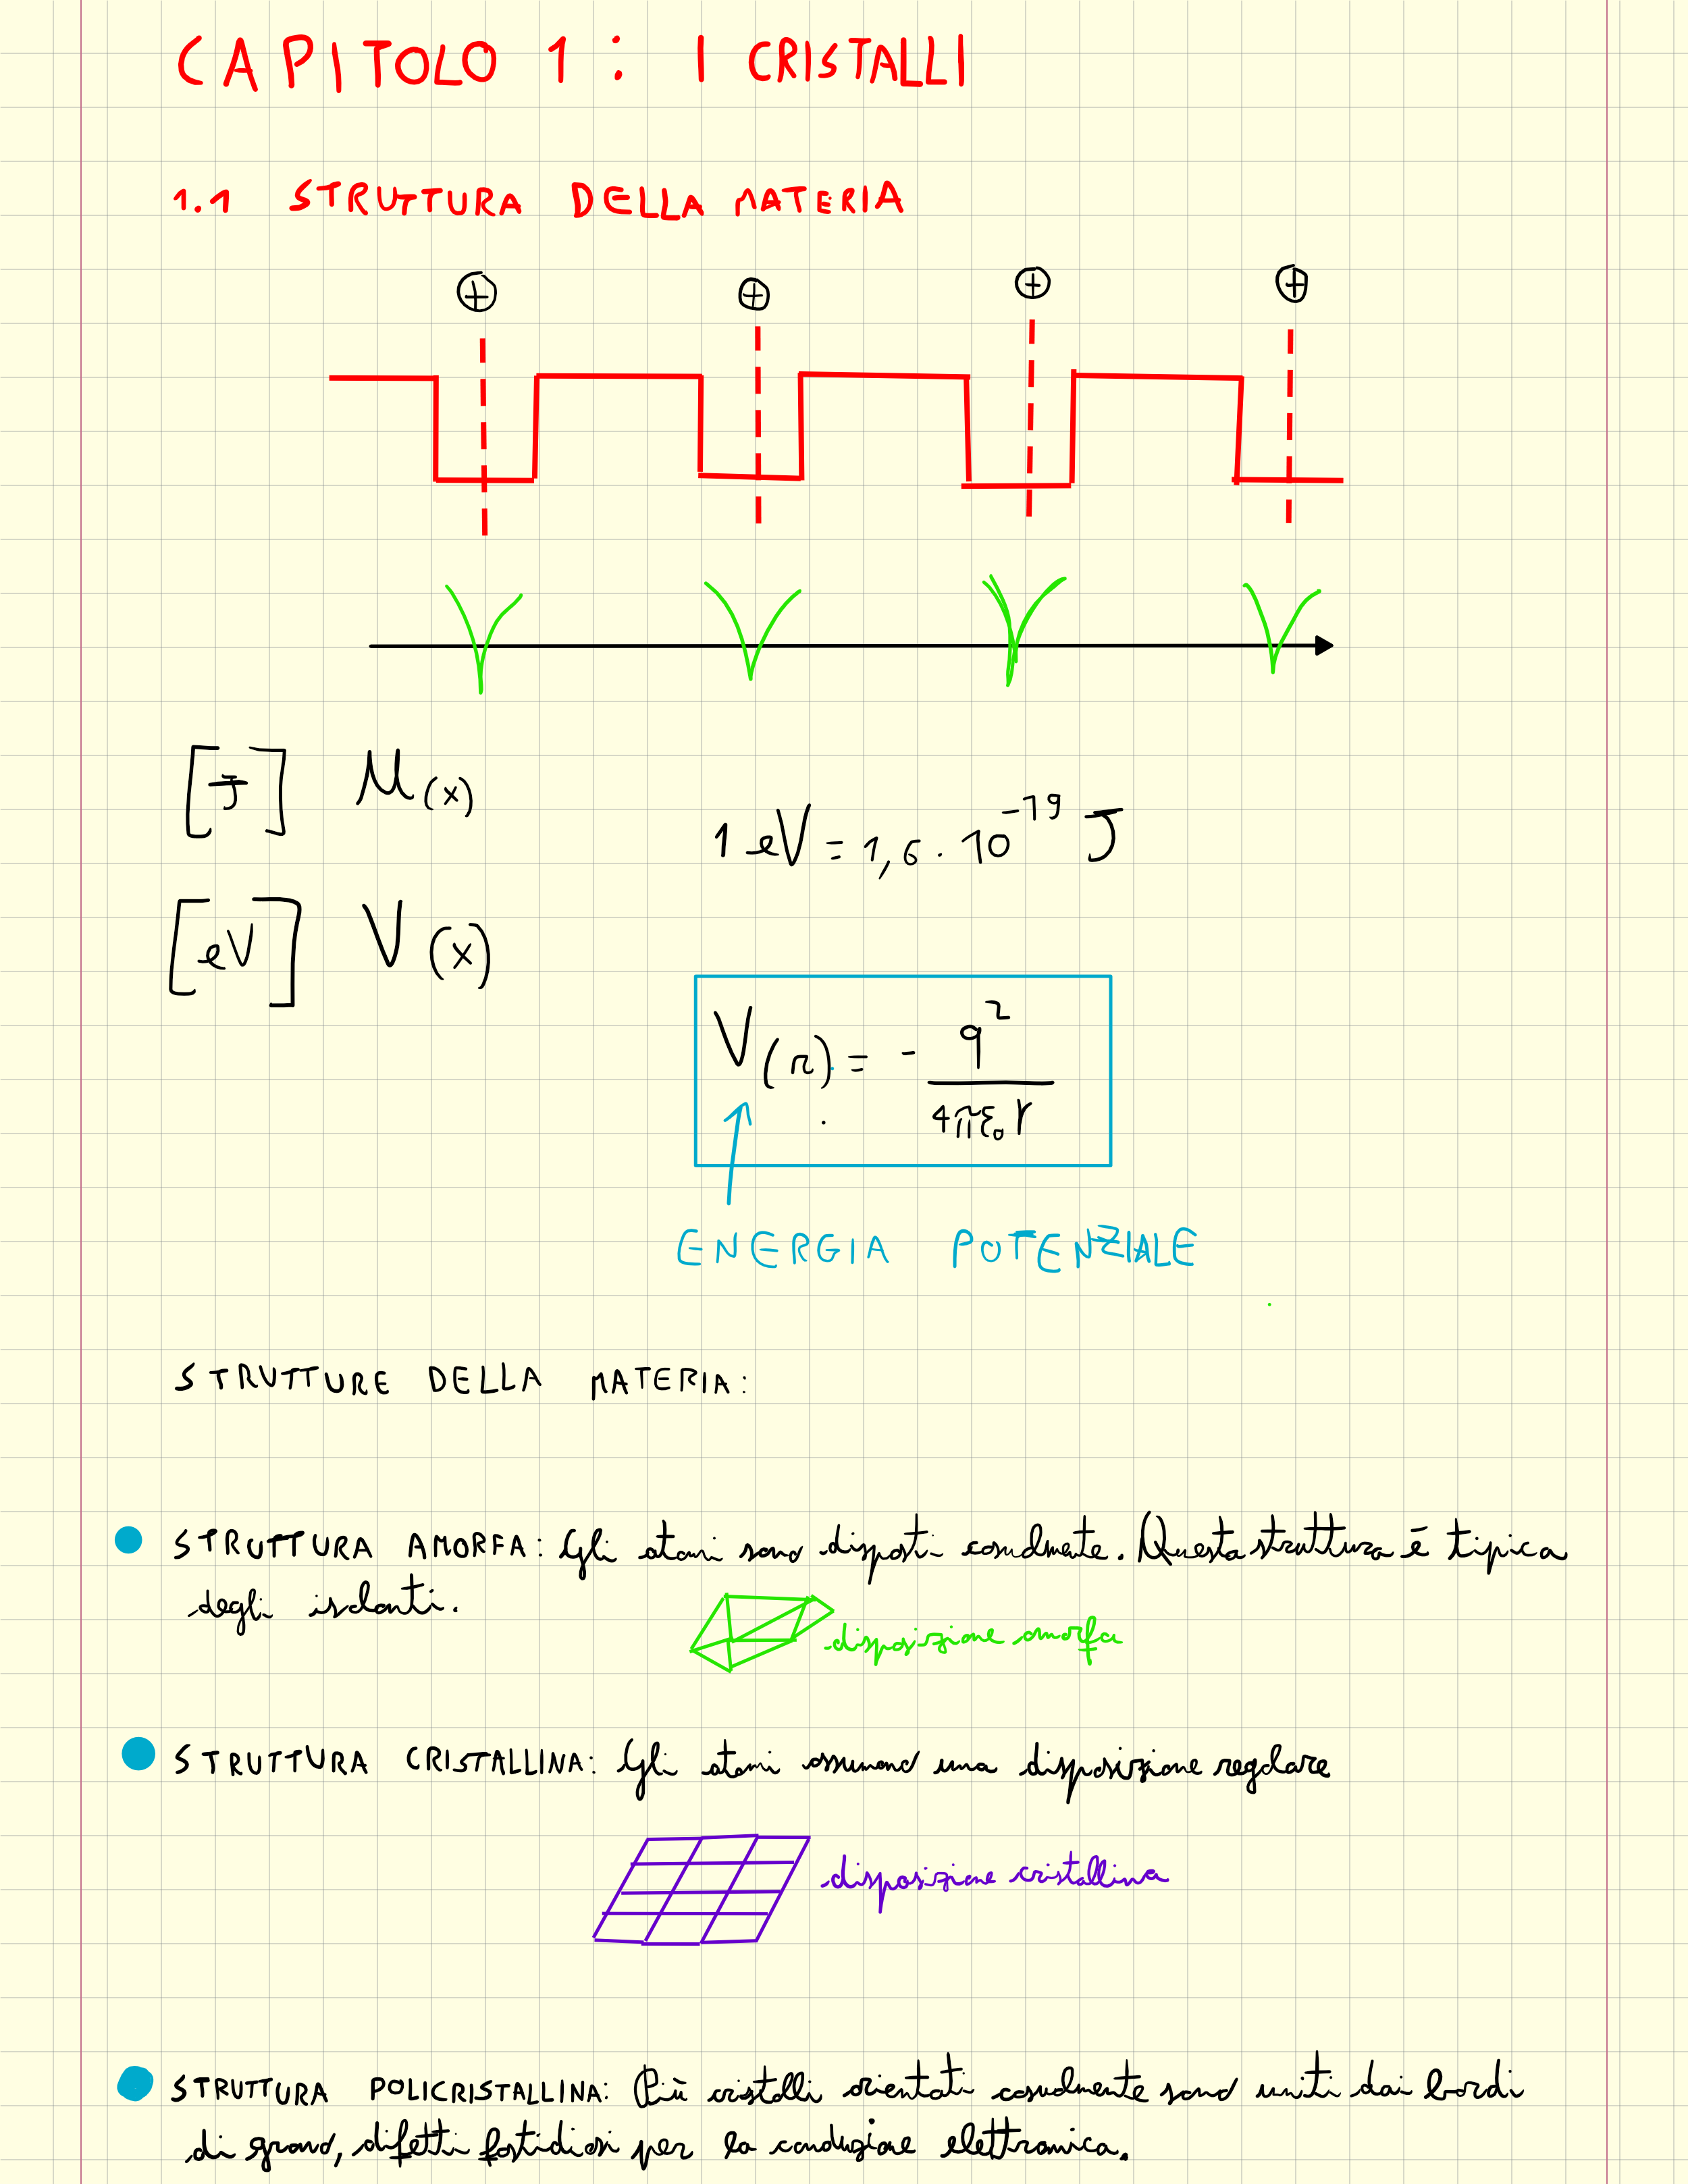 CAPITOLO 1 : I CRISTALLI
1.1 STRUTTURA DELLA MATERIA
⊕ ⊕ ⊕ ⊕
[J] U(x)
1 eV = 1,6 · 10^-19 J
[eV] V(x)
V(r) = - q² / 4πε₀r
ENERGIA POTENZIALE
STRUTTURE DELLA MATERIA:
STRUTTURA AMORFA: Gli atomi sono disposti casualmente. Questa struttura è tipica
degli isolanti.
disposizione amorfa
STRUTTURA CRISTALLINA: Gli atomi assumono una disposizione regolare
disposizione cristallina
STRUTTURA POLICRISTALLINA: Più cristalli orientati casualmente sono uniti dai bordi
di grano, difetti fastidiosi per la conduzione elettronica.